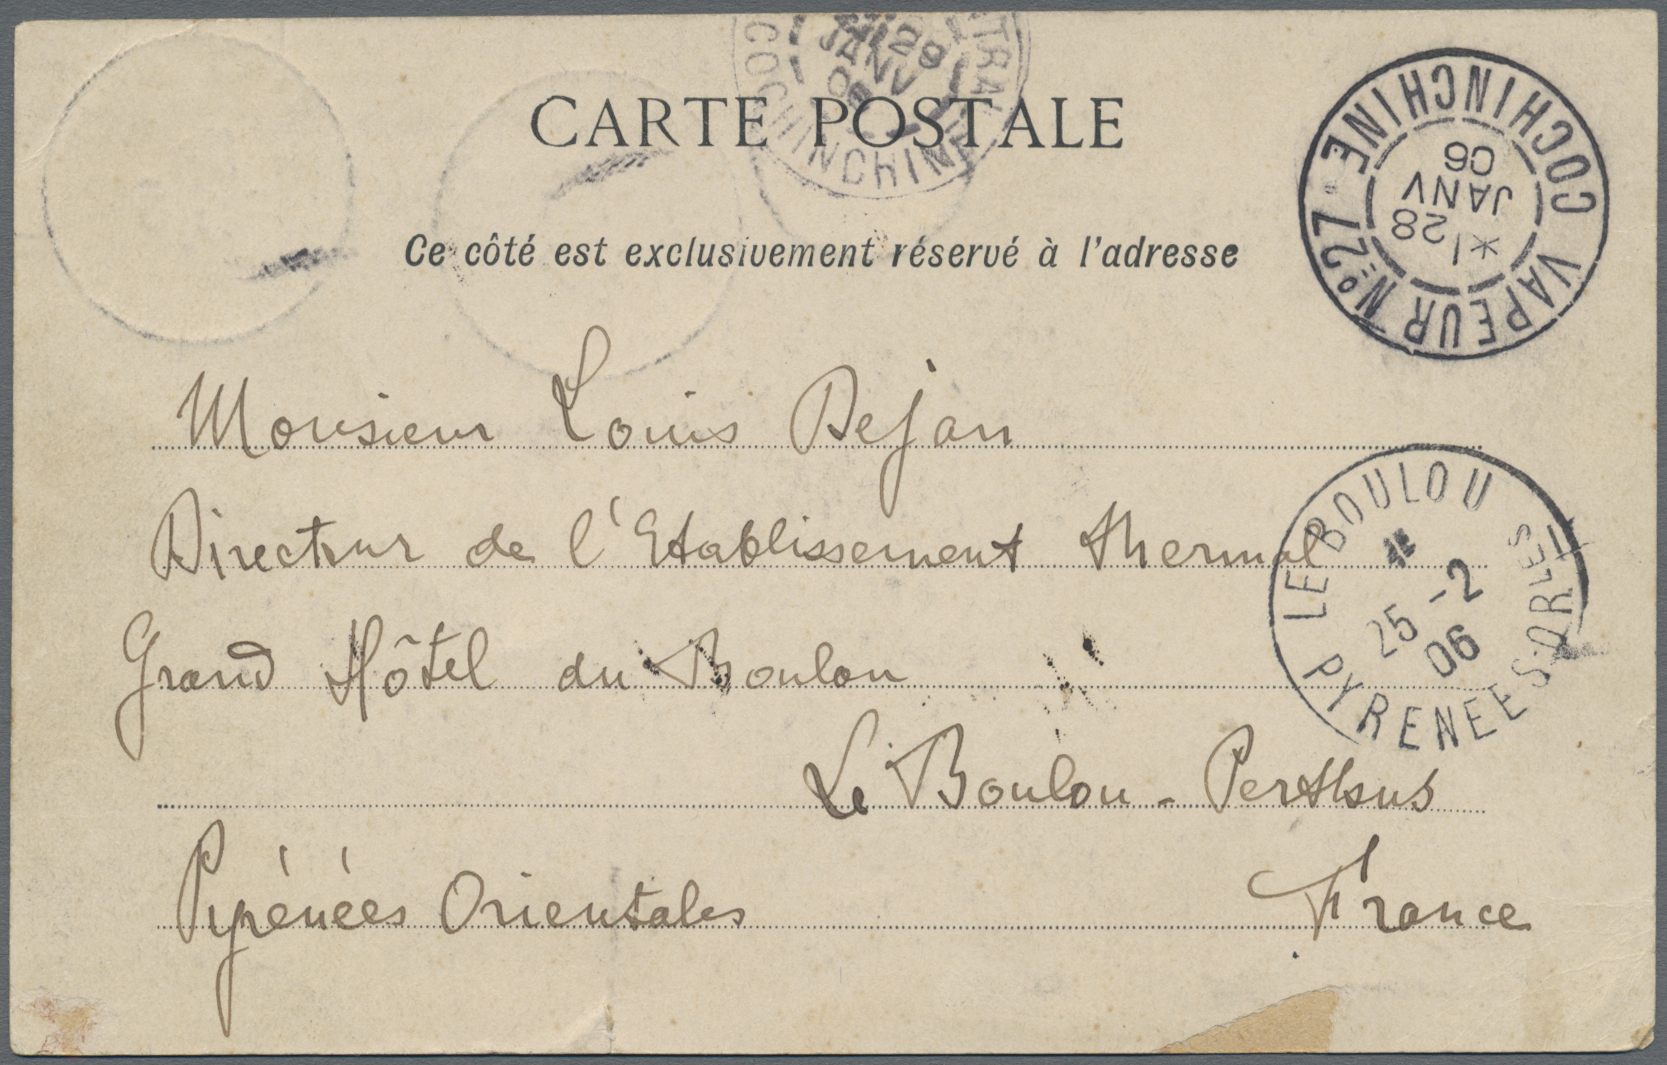 CARTE POSTALE
Ce côté est exclusivement réservé à l'adresse
29
JANV
COCHINCHINE
COCHINCHINE
VAPEUR Nº 27
28
JANV
06
Monsieur Louis Dejan
Directeur de l'Etablissement thermal
Grand Hôtel du Boulou
Le Boulou - Perthus
Pyrénées Orientales France
LE BOULOU
25 -2
06
PYRENEES-ORLES